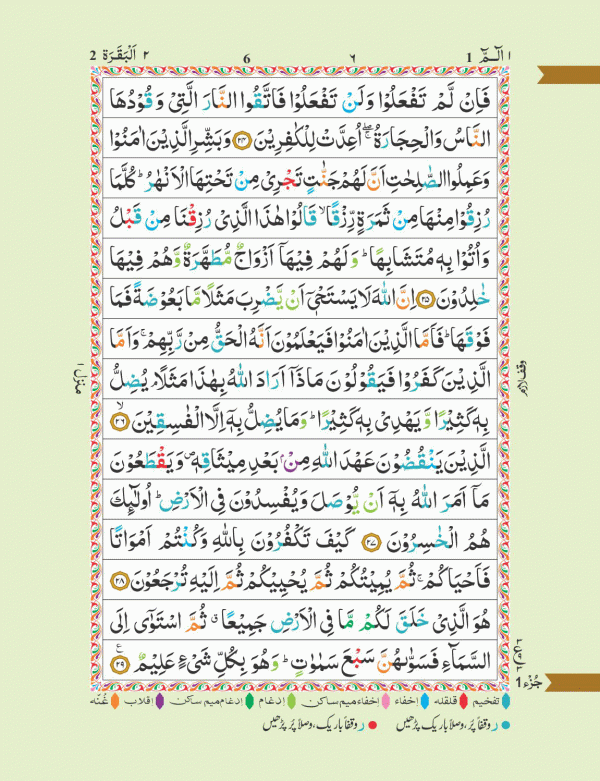 ١ الٓـمّٓ 1 ٦ 6 ٢ اَلْبَقَرَة 2
فَاِنْ لَّمْ تَفْعَلُوْا وَلَنْ تَفْعَلُوْا فَاتَّقُوا النَّارَ الَّتِيْ وَقُوْدُهَا
النَّاسُ وَالْحِجَارَةُ ۖۚ اُعِدَّتْ لِلْكٰفِرِيْنَ ۝۲۴ وَبَشِّرِ الَّذِيْنَ اٰمَنُوْا
وَعَمِلُوا الصّٰلِحٰتِ اَنَّ لَهُمْ جَنّٰتٍ تَجْرِيْ مِنْ تَحْتِهَا الْاَنْهٰرُ ؕ كُلَّمَا
رُزِقُوْا مِنْهَا مِنْ ثَمَرَةٍ رِّزْقًا ۙ قَالُوْا هٰذَا الَّذِيْ رُزِقْنَا مِنْ قَبْلُ
وَاُتُوْا بِهٖ مُتَشَابِهًا ؕ وَلَهُمْ فِيْهَاۤ اَزْوَاجٌ مُّطَهَّرَةٌ وَّهُمْ فِيْهَا
خٰلِدُوْنَ ۝۲۵ اِنَّ اللّٰهَ لَا يَسْتَحْيٖۤ اَنْ يَّضْرِبَ مَثَلًا مَّا بَعُوْضَةً فَمَا
فَوْقَهَا ؕ فَاَمَّا الَّذِيْنَ اٰمَنُوْا فَيَعْلَمُوْنَ اَنَّهُ الْحَقُّ مِنْ رَّبِّهِمْ ۚ وَاَمَّا
الَّذِيْنَ كَفَرُوْا فَيَقُوْلُوْنَ مَاذَاۤ اَرَادَ اللّٰهُ بِهٰذَا مَثَلًا ۘ يُضِلُّ
بِهٖ كَثِيْرًا وَّيَهْدِيْ بِهٖ كَثِيْرًا ؕ وَمَا يُضِلُّ بِهٖۤ اِلَّا الْفٰسِقِيْنَ ۙ۝۲۶
الَّذِيْنَ يَنْقُضُوْنَ عَهْدَ اللّٰهِ مِنْۢ بَعْدِ مِيْثَاقِهٖ ۪ وَيَقْطَعُوْنَ
مَاۤ اَمَرَ اللّٰهُ بِهٖۤ اَنْ يُّوْصَلَ وَيُفْسِدُوْنَ فِي الْاَرْضِ ؕ اُولٰٓئِكَ
هُمُ الْخٰسِرُوْنَ ۝۲۷ كَيْفَ تَكْفُرُوْنَ بِاللّٰهِ وَكُنْتُمْ اَمْوَاتًا
فَاَحْيَاكُمْ ۚ ثُمَّ يُمِيْتُكُمْ ثُمَّ يُحْيِيْكُمْ ثُمَّ اِلَيْهِ تُرْجَعُوْنَ ۝۲۸
هُوَ الَّذِيْ خَلَقَ لَكُمْ مَّا فِي الْاَرْضِ جَمِيْعًا ۗ ثُمَّ اسْتَوٰۤى اِلَى
السَّمَآءِ فَسَوّٰىهُنَّ سَبْعَ سَمٰوٰتٍ ؕ وَهُوَ بِكُلِّ شَيْءٍ عَلِيْمٌ ۝۲۹ ع
وقف لازم
منزل ١
جُزْء 1
تفخيم قلقله إخفاء إخفاء ميم ساكن إدغام إدغام ميم ساكن إقلاب غُنّه
ر وقفاً پُر، وصلاً باریک پڑھیں ر وقفاً باریک، وصلاً پُر پڑھیں